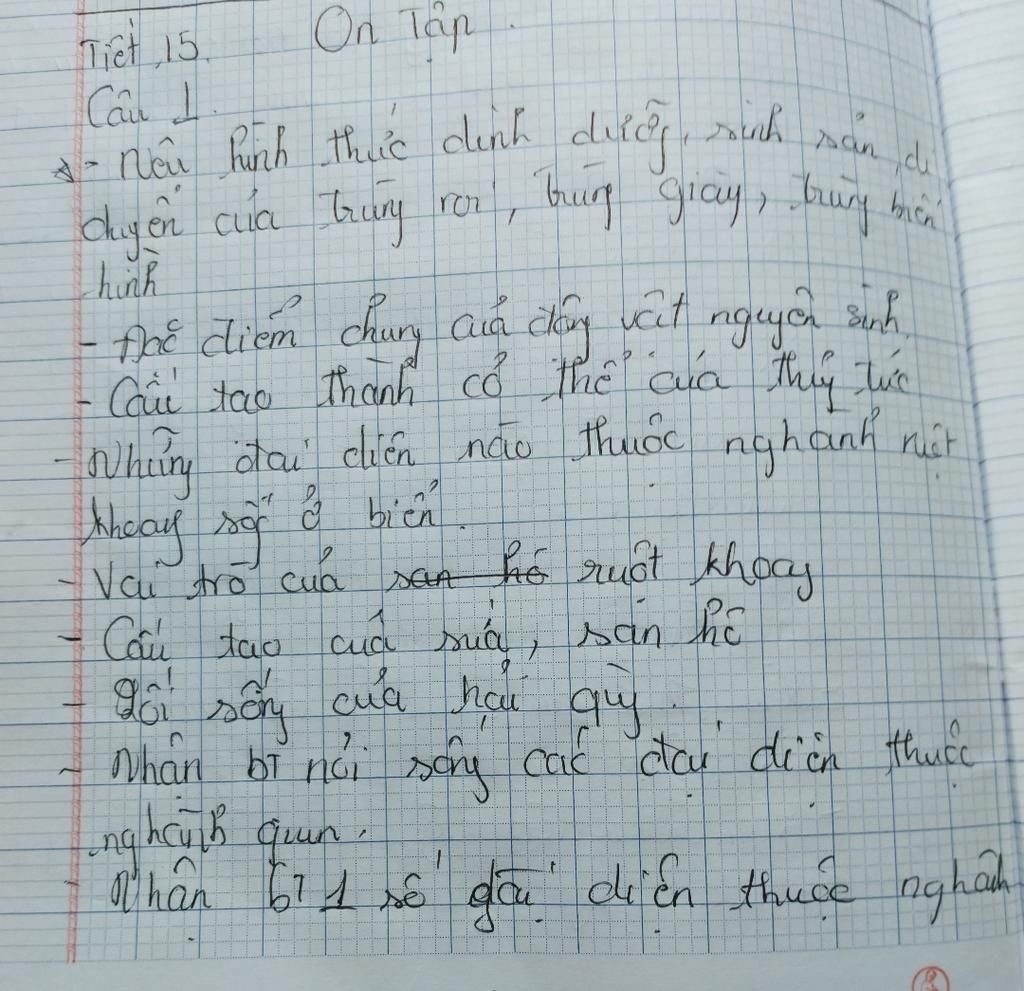 Tiết 15. Ôn Tập.
Câu 1.
- Nêu hình thức dinh dưỡng, sinh sản, di
chuyển của trùng roi, trùng giày, trùng biến
hình
- Đặc điểm chung của động vật nguyên sinh
- Cấu tạo thành cơ thể của thủy tức
- Những đại diện nào thuộc nghành ruột
khoang sống ở biển.
- Vai trò của san hô ruột khoang
- Cấu tạo của sứa, san hô
- Đời sống của hải quỳ.
- Nhận bt nơi sống các đại diện thuộc
nghành giun.
- Nhận bt 1 số đại diện thuộc nghành